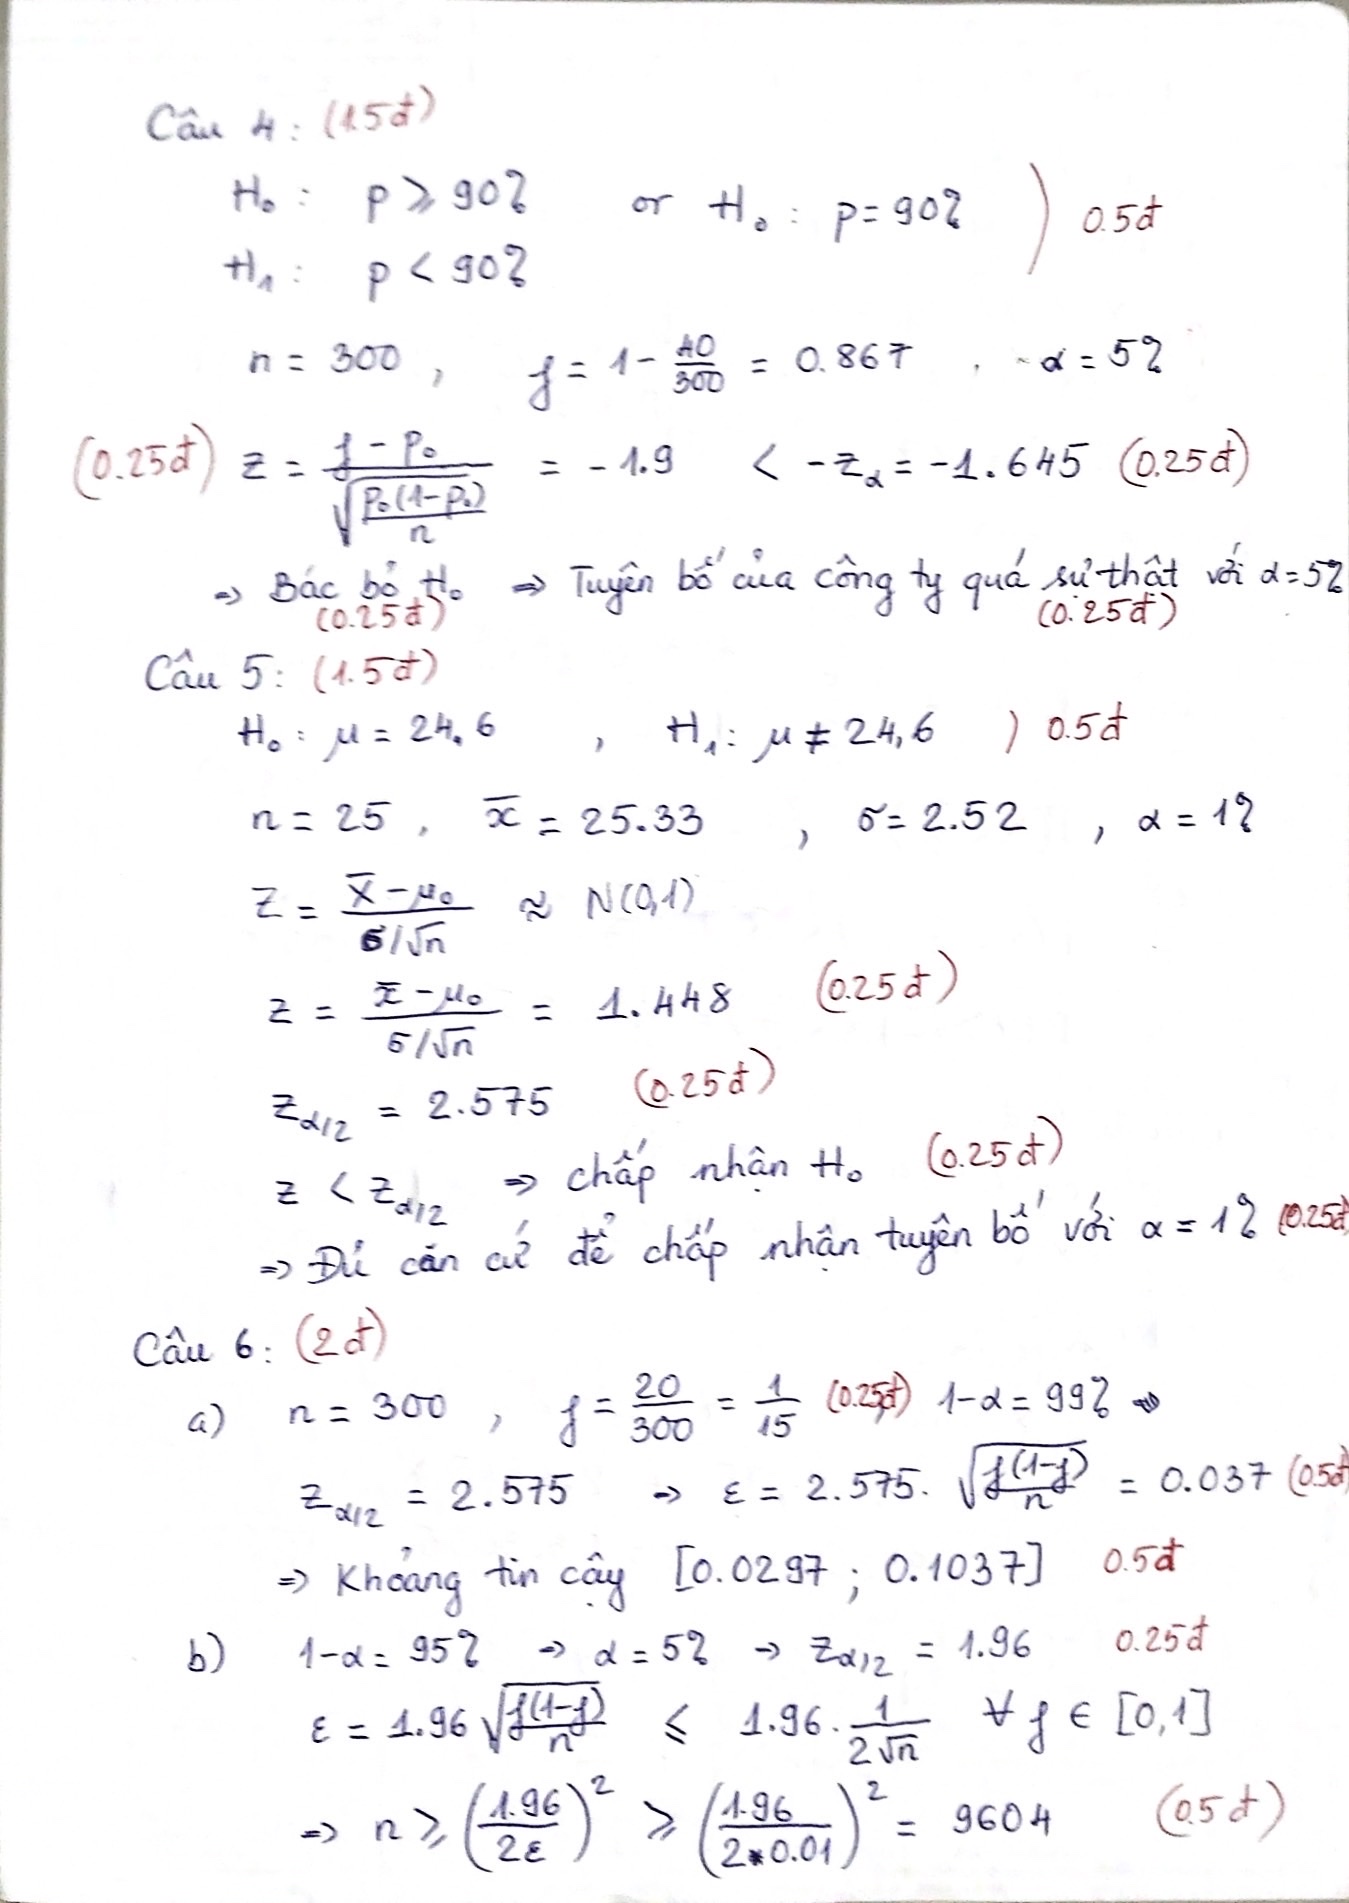 Câu 4: (1.5đ)
H₀: p ⩾ 90% or H₀: p = 90% ) 0.5đ
H₁: p < 90%
n = 300, f = 1 - 40/300 = 0.867, α = 5%
(0.25đ) z = (f - p₀)/√(p₀(1-p₀)/n) = -1.9 < -z_α = -1.645 (0.25đ)
⇒ Bác bỏ H₀ ⇒ Tuyên bố của công ty quá sự thật với α = 5%
(0.25đ) (0.25đ)
Câu 5: (1.5đ)
H₀: μ = 24.6, H₁: μ ≠ 24,6 ) 0.5đ
n = 25, x̄ = 25.33, σ = 2.52, α = 1%
Z = (X̄ - μ₀)/(σ/√n) ≈ N(0,1)
z = (x̄ - μ₀)/(σ/√n) = 1.448 (0.25đ)
z_α/2 = 2.575 (0.25đ)
z < z_α/2 ⇒ chấp nhận H₀ (0.25đ)
⇒ Đủ căn cứ để chấp nhận tuyên bố với α = 1% (0.25đ)
Câu 6: (2đ)
a) n = 300, f = 20/300 = 1/15 (0.25đ) 1-α = 99% ⇒
z_α/2 = 2.575 → ε = 2.575. √(f(1-f)/n) = 0.037 (0.5đ)
⇒ Khoảng tin cậy [0.0297; 0.1037] 0.5đ
b) 1-α = 95% → α = 5% → z_α/2 = 1.96 0.25đ
ε = 1.96 √(f(1-f)/n) ⩽ 1.96. 1/(2√n) ∀ f ∈ [0,1]
⇒ n ⩾ (1.96/2ε)² ⩾ (1.96/(2*0.01))² = 9604 (0.5đ)